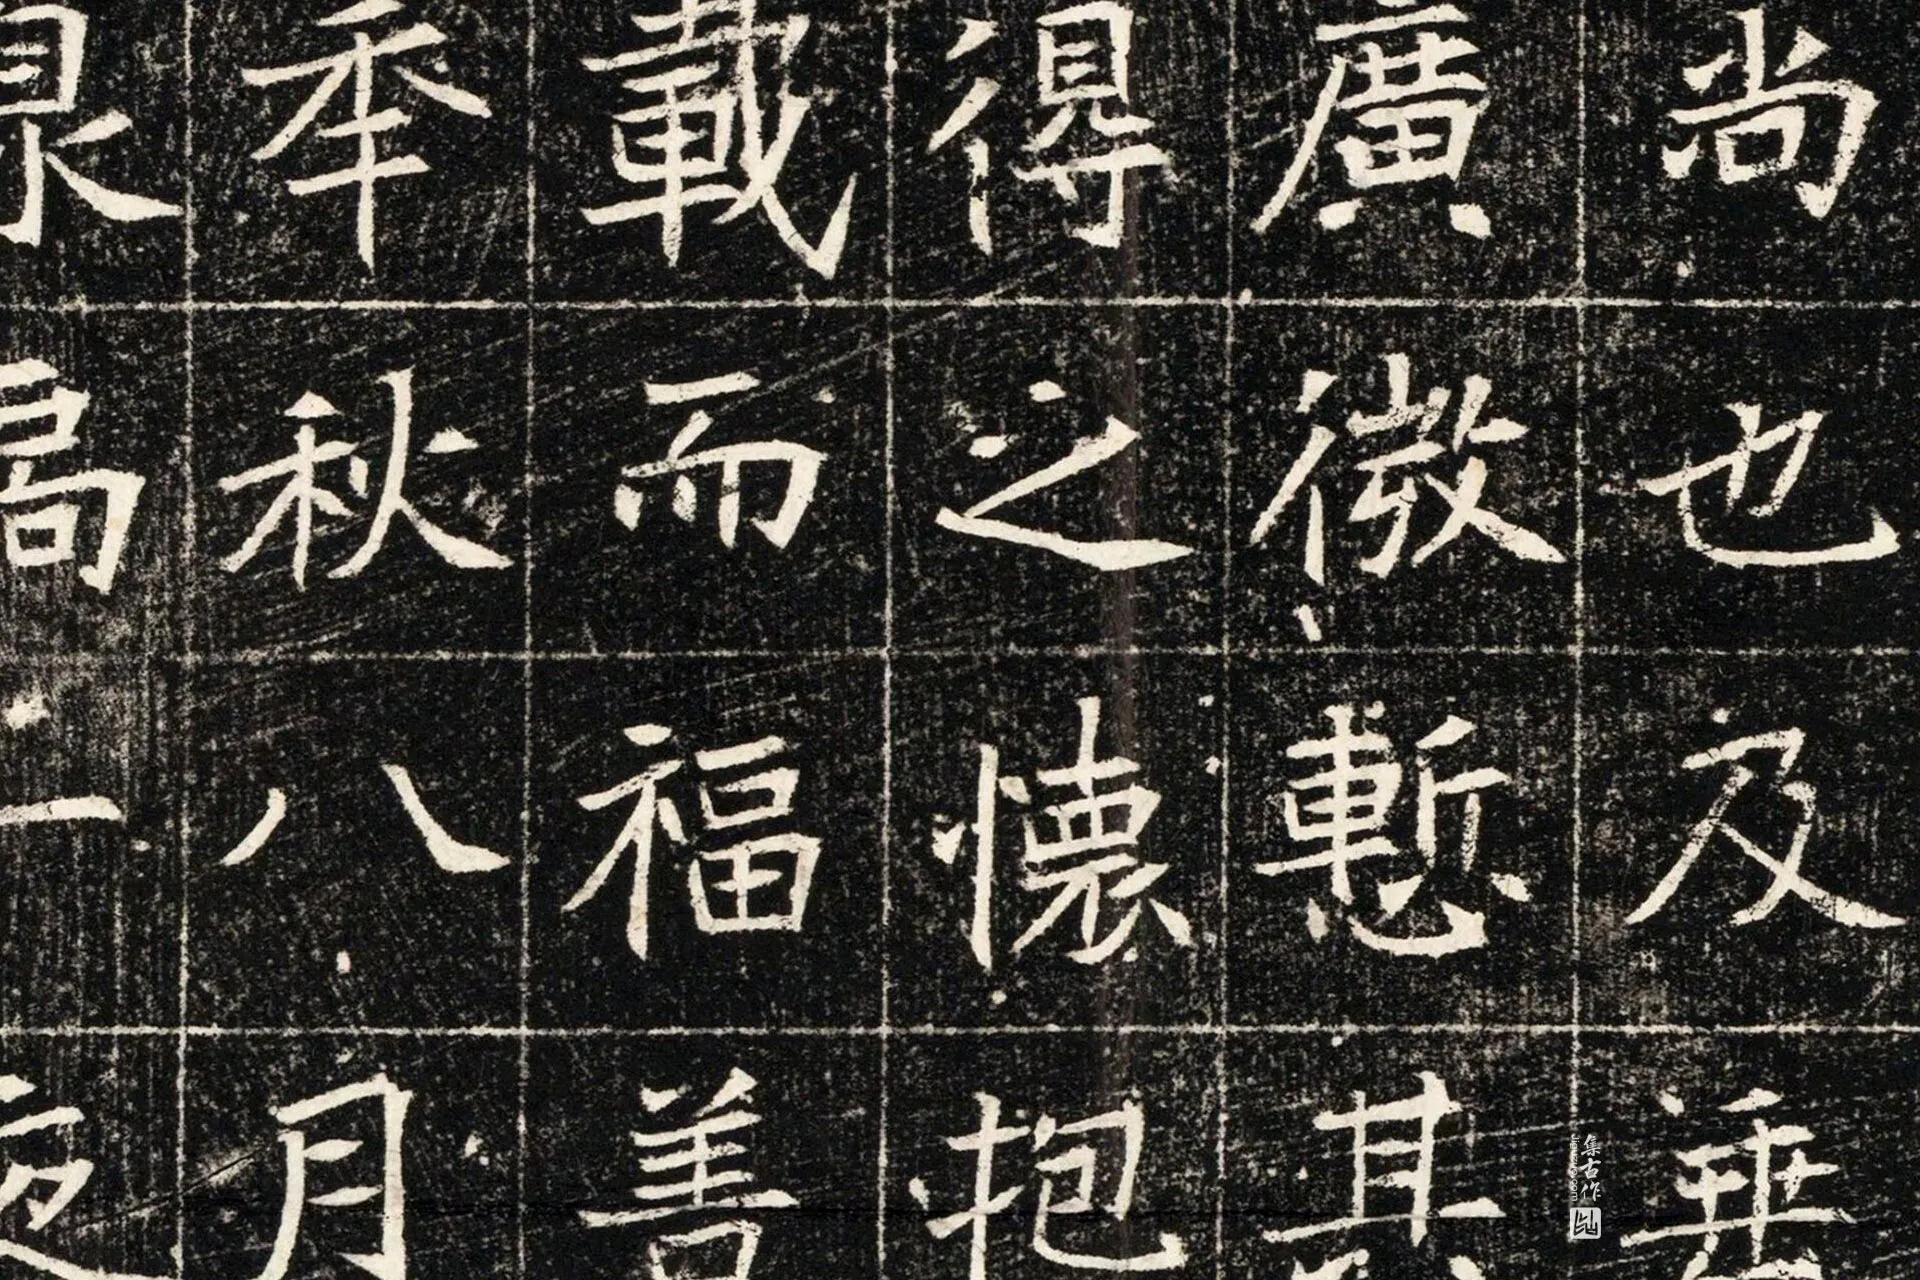 尚也及
廣微慙其
得之懷抱
載而福善
秊秋八月
泉扃一
集古作